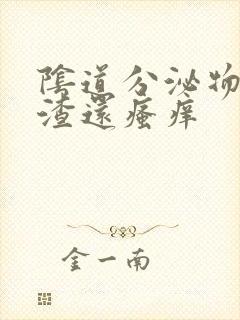 陰道分泌物
渣還瘙痒
金一南